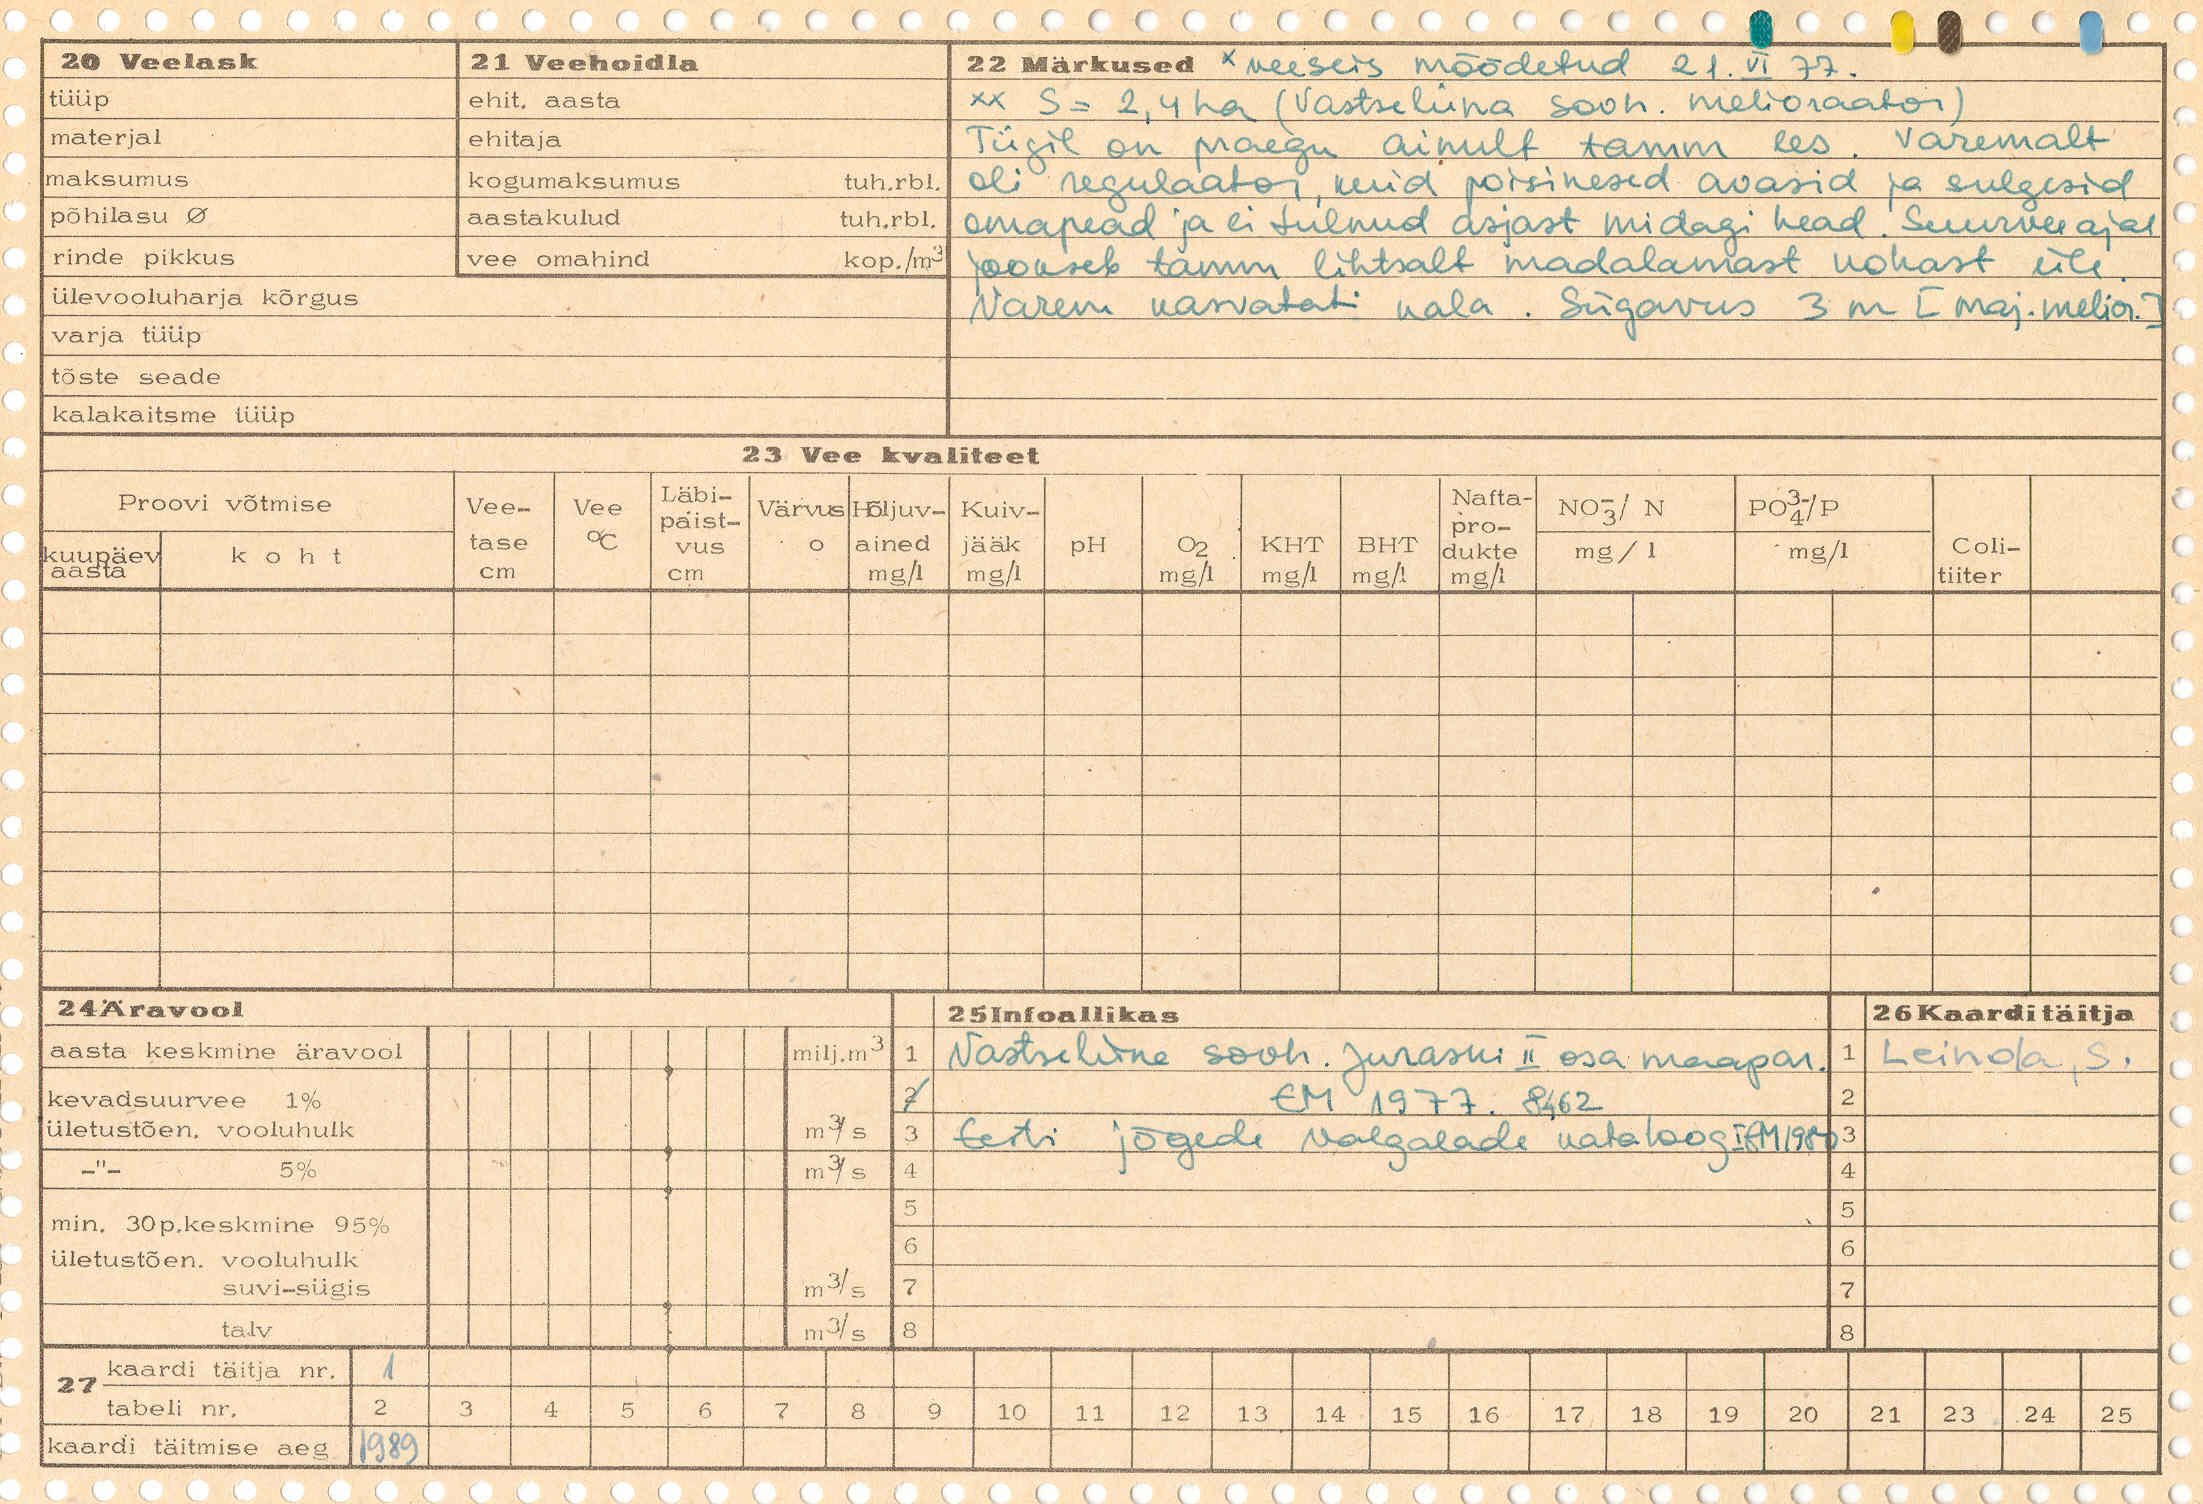 20 Veelask
tüüp
materjal
maksumus
põhilasu Ø
rinde pikkus
ülevooluharja kõrgus
varja tüüp
tõste seade
kalakaitsme tüüp
21 Veehoidla
ehit. aasta
ehitaja
kogumaksumus tuh.rbl.
aastakulud tuh.rbl.
vee omahind kop./m³
22 Märkused x veeseis mõõdetud 21. VI 77.
xx S = 2,4 ha (Vastseliina sovh. melioraator)
Tiigil on praegu ainult tamm ees. Varemalt
oli regulaator, kuid poisikesed avasid ja sulgesid
omapead ja ei tulnud asjast midagi head. Suurvee ajal
jookseb tamm lihtsalt madalamast kohast üle.
Varem kasvatati kala. Sügavus 3 m [maj. melior.]
23 Vee kvaliteet
Proovi võtmise
kuupäev aasta
koht
Vee-tase cm
Vee °C
Läbi-paist-vus cm
Värvus o
Hõljuv-ained mg/l
Kuiv-jääk mg/l
pH
O2 mg/l
KHT mg/l
BHT mg/l
Nafta-pro-dukte mg/l
NO3⁻/N mg/l
PO4³⁻/P mg/l
Coli-tiiter
24 Äravool
aasta keskmine äravool milj.m³
kevadsuurvee 1%
ületustõen. vooluhulk m³/s
-"- 5% m³/s
min. 30p.keskmine 95%
ületustõen. vooluhulk
suvi-sügis m³/s
talv m³/s
25 Infoallikas
1 Vastseliina sovh. Juraski II osa maapar.
2 EM 1977. 8462
3 Eesti jõgede valgalade kataloog I EM 1980
4
5
6
7
8
26 Kaardi täitja
1 Leinola, S.
2
3
4
5
6
7
8
27 kaardi täitja nr. 1
tabeli nr. 2 3 4 5 6 7 8 9 10 11 12 13 14 15 16 17 18 19 20 21 23 24 25
kaardi täitmise aeg 1989